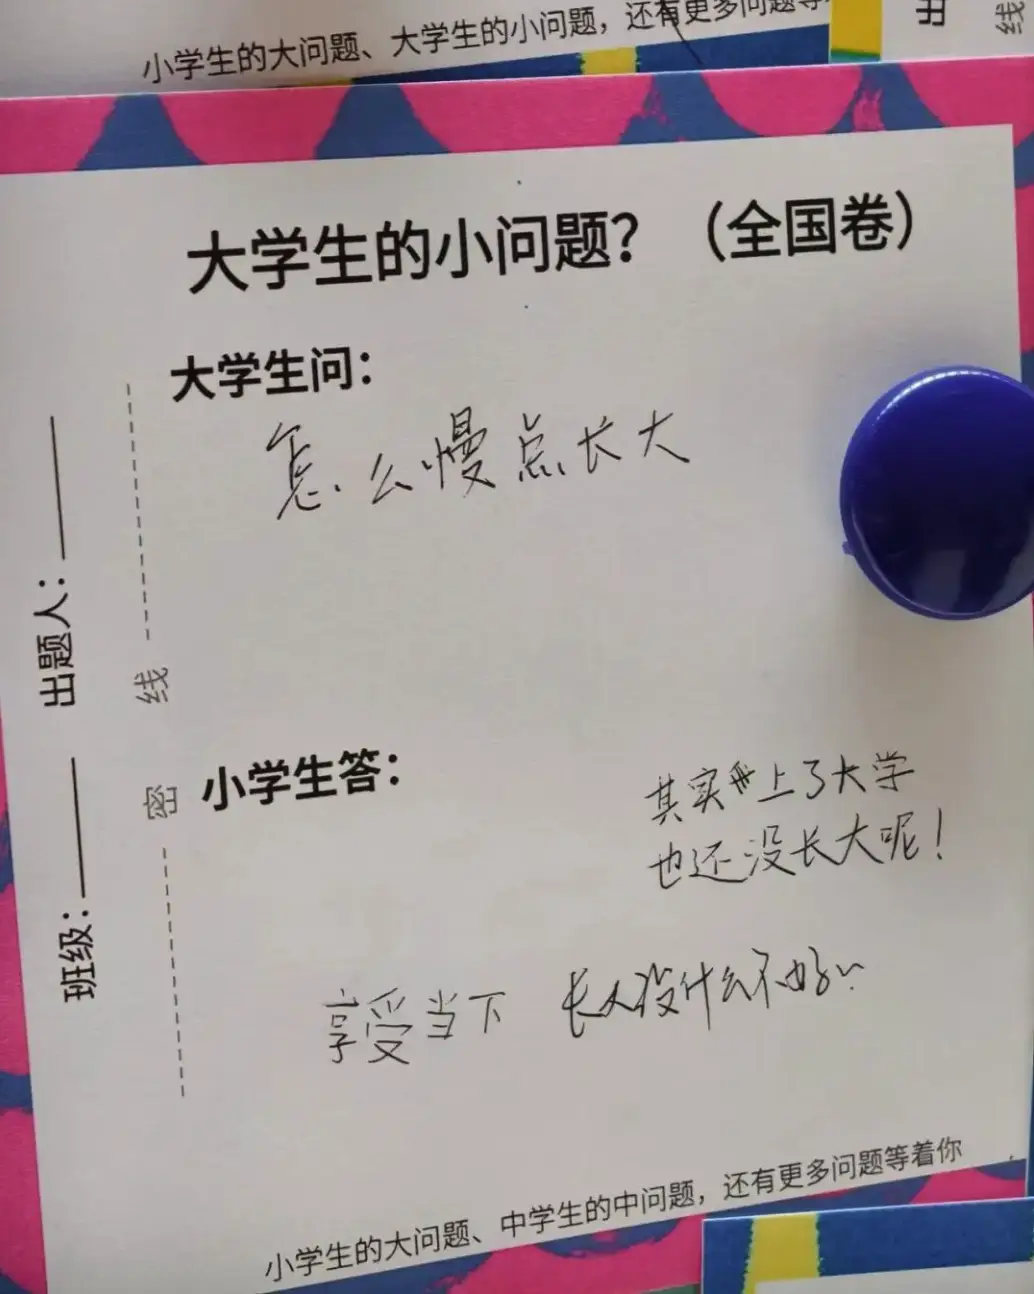 小学生的大问题、大学生的小问题，还有更多问题等
线
大学生的小问题？（全国卷）
大学生问：
怎么慢点长大
出题人：
线
小学生答：
密
其实上了大学
也还没长大呢！
班级：
享受当下 长大没什么不好
小学生的大问题、中学生的中问题，还有更多问题等着你